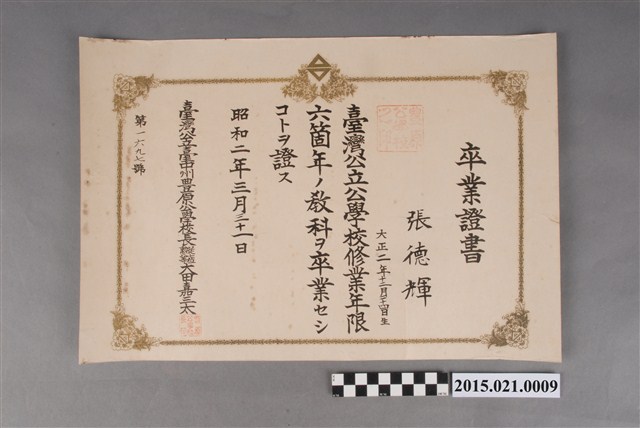 卒業證書
張德輝
大正二年十二月
生
臺灣公立公學校修業年限
六箇年ノ敎科ヲ卒業セシ
コトヲ證ス
昭和二年三月三十一日
臺灣公立臺中州豐原公學校長
太田嘉三太
第一六九七號
2015.021.0009